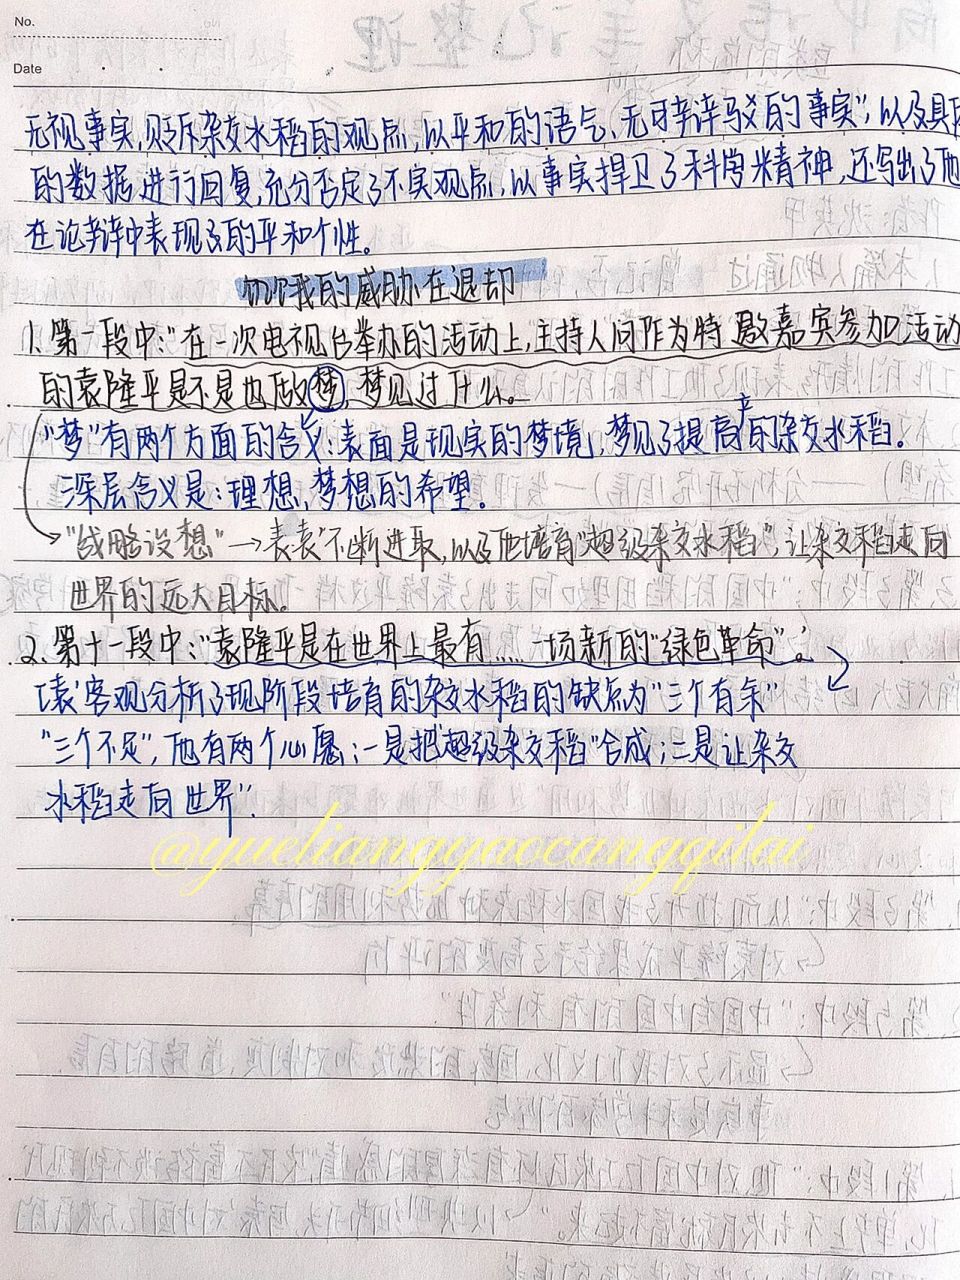 No.
Date
无视事实,贬斥杂交水稻的观点,以平和的语气、无可辩驳的事实",以及具
的数据进行回复,充分否定了不实观点,以事实捍卫了科学精神,还写出了他
在论辩中表现了的平和个性。
饥饿的威胁在退却
1.第一段中:"在一次电视台举办的活动上,主持人问作为特邀嘉宾参加活动
的袁隆平是不是也做梦,梦见过什么。
"梦"有两个方面的含义:表面是现实的梦境,梦见了提高产的杂交水稻。
深层含义是:理想,梦想的希望。
"战略设想"→表袁"不断进取,以及他培育"超级杂交水稻",让杂交稻走向
世界的远大目标。
2.第十一段中:"袁隆平是在世界上最有……一场新的"绿色革命"。
袁客观分析了现阶段培育的杂交水稻的缺点为"三个有余"
"三个不足",他有两个心愿:一是把"超级杂交稻"合成;二是让杂交
水稻走向世界"
@yueliangyaocangqilai